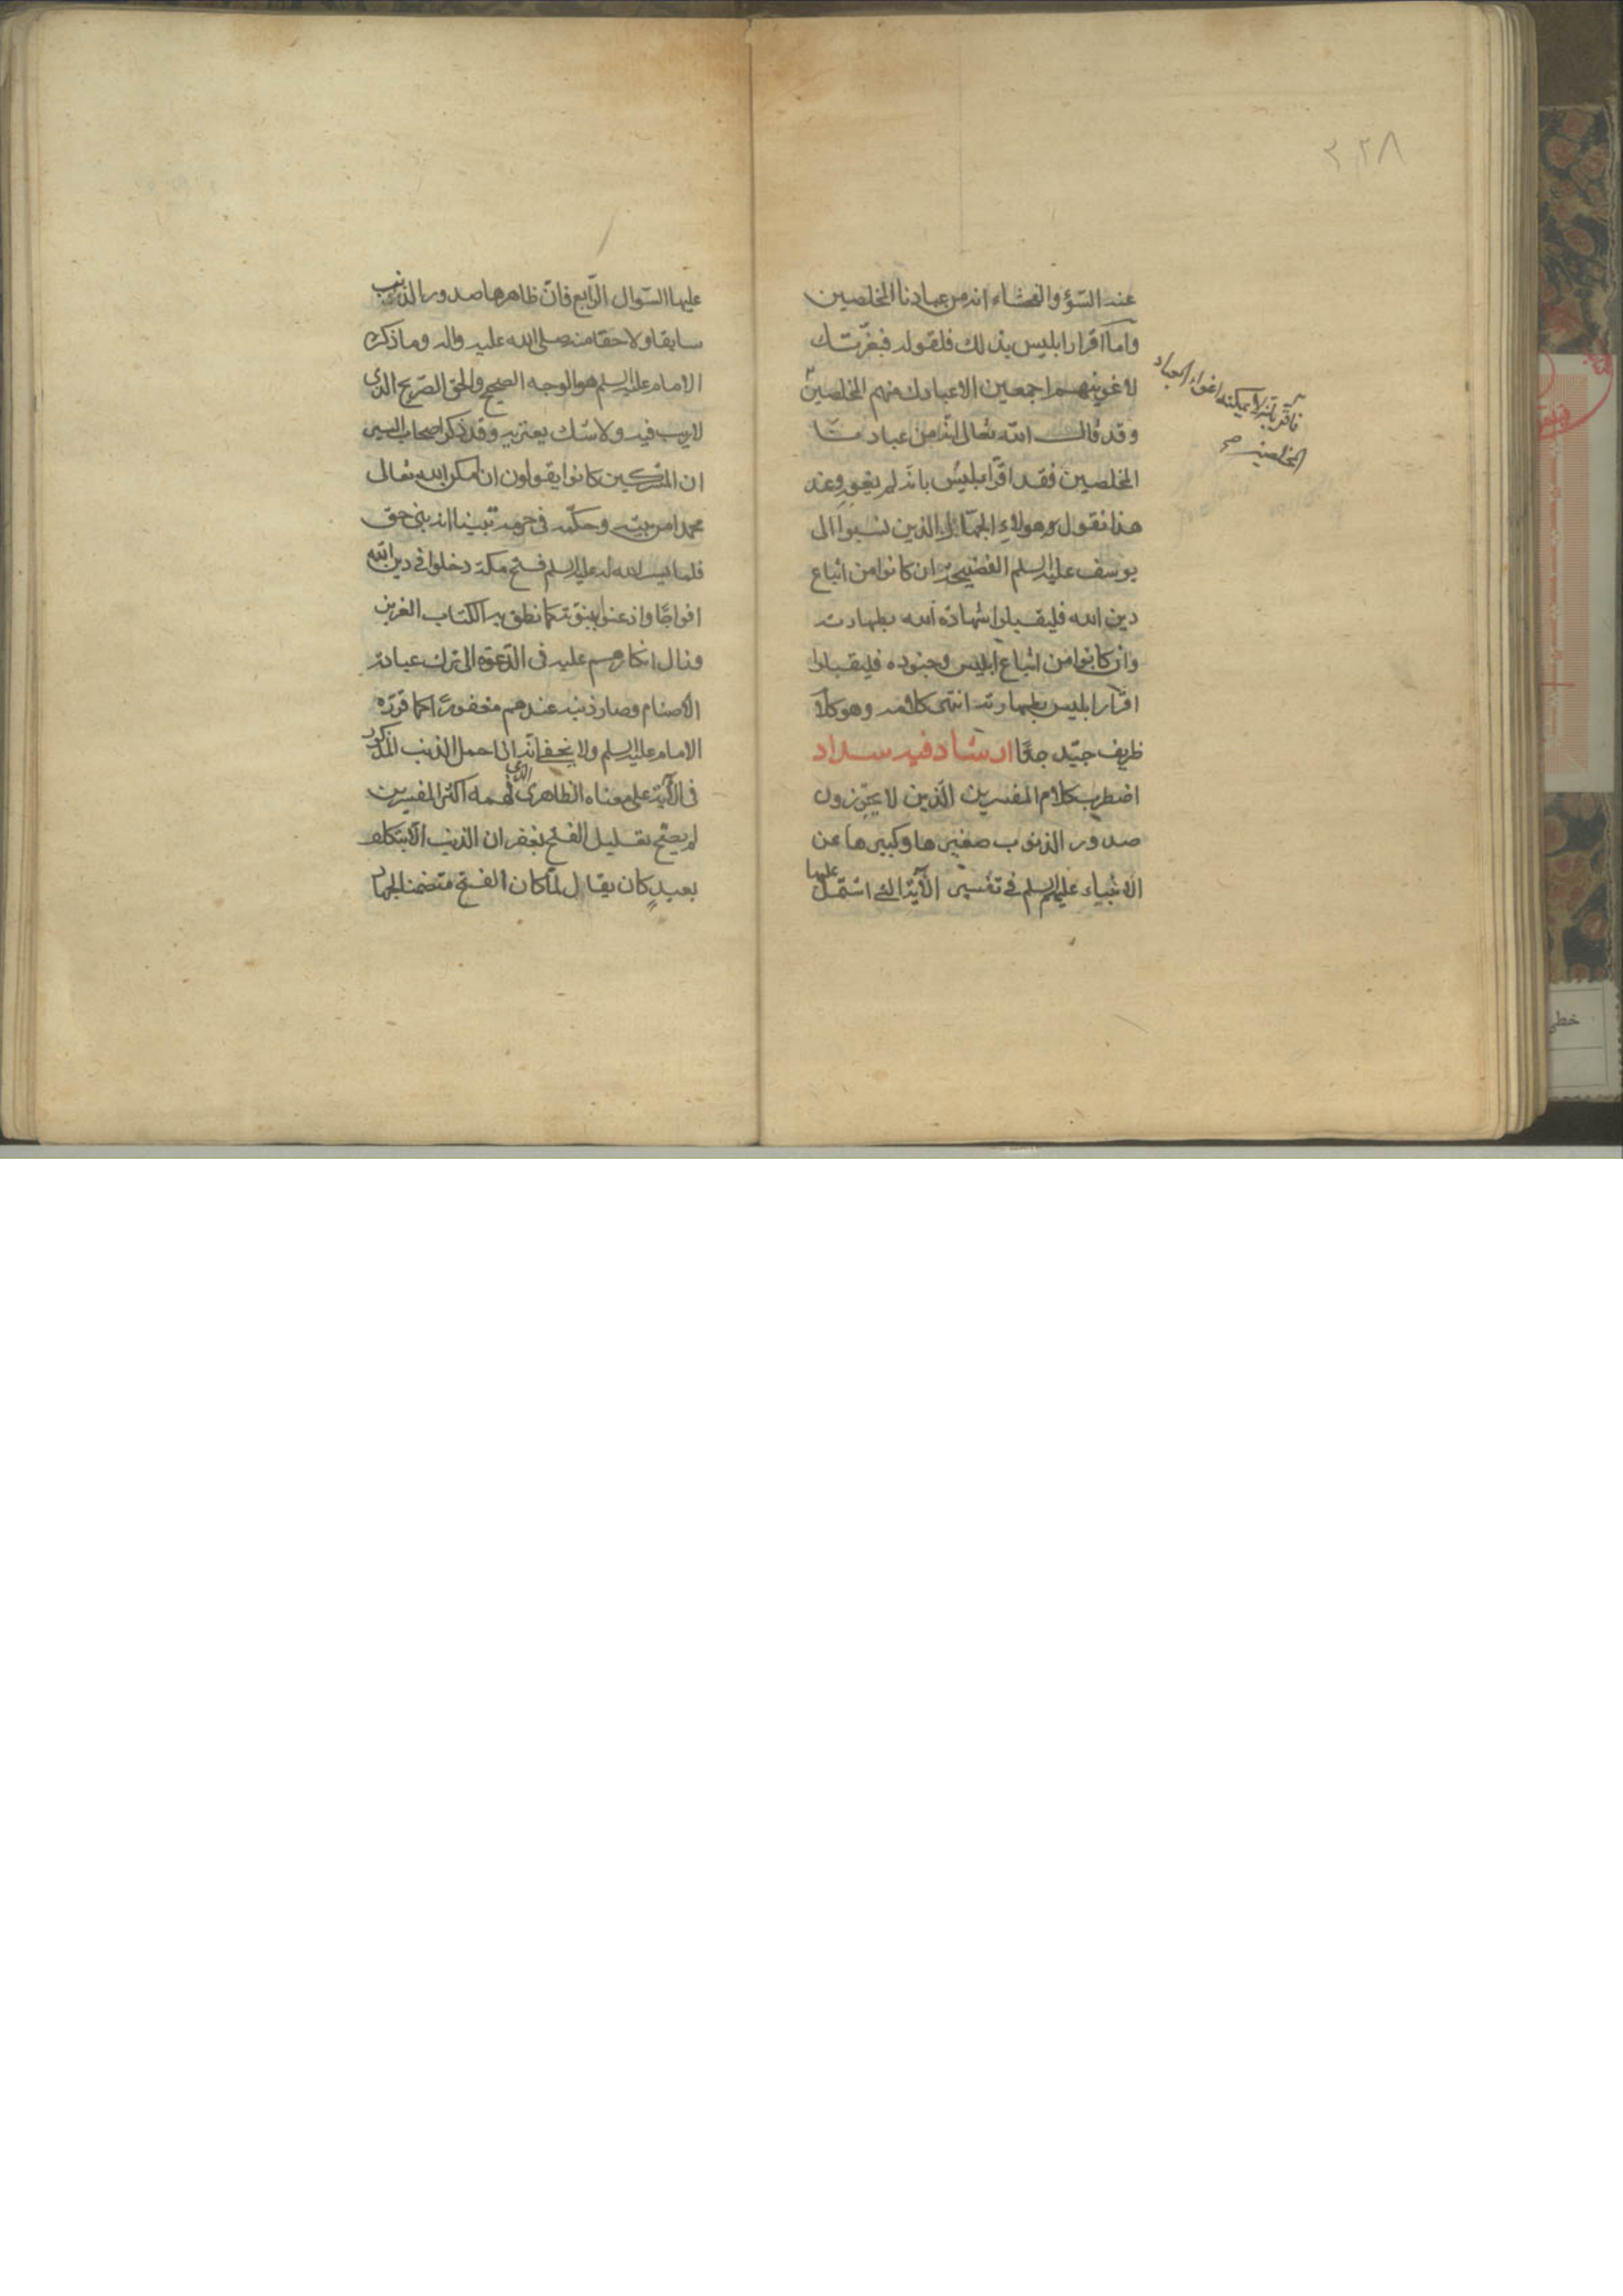 ٢٢٨
عنه السّؤ والفحشاء انه من عبادنا المخلصين
وامّا اقرار ابليس بذلك فلقوله فبعزّتك
لاغوينهم اجمعين الا عبادك منهم المخلصين
فاقرّ بانه لا يمكنه اغواء العباد
المخلصين صح
وقد قال الله تعالى انّه من عبادنا
المخلصين فقد اقرّ ابليس بانّه لم يغوه وعند
هذا نقول وهولاء الجهّال الذين نسبوا الى
يوسف عليه السلم الفضيحة ان كانوا من اتباع
دين الله فليقبلوا شهادة الله بطهارته
وان كانوا من اتباع ابليس وجنوده فليقبلوا
اقرار ابليس بطهارته انتهى كلامه وهو كلام
ظريف جيّد جدّا ارشاد فيه سداد
اضطرب كلام المفسرين الّذين لا يجوّزون
صدور الذنوب صغيرها وكبيرها عن
الانبياء عليهم السلم في تفسير الآية التي اشتمل عليها
عليها السّوال الرّابع فانّ ظاهرها صدور الذنب
سابقا ولاحقا منه صلى الله عليه واله وما ذكره
الامام عليه السلم هو الوجه الصحيح والحق الصّريح الذي
لا ريب فيه ولا شك يعتريه وقد ذكر اصحاب السير
ان المشركين كانوا يقولون ان مكن الله تعالى
محمدا من بيته وحكّمه في حرمه تبينا انه نبي حق
فلما يسر الله له عليه السلم فتح مكة دخلوا في دين الله
افواجًا واذعنوا بنبوّته كما نطق به الكتاب العزيز
وزال انكارهم عليه في الدّعوة الى ترك عبادة
الاصنام وصار ذنبه عندهم مغفورًا كما قرّره
الامام عليه السلم ولا يخفى انّه اذا حمل الذنب المذكور
في الآية على معناه الظاهري الذي فهمه اكثر المفسرين
لم يصحّ تعليل الفتح بغفران الذنب الا بتكلف
بعيد كان يقال لمّا كان الفتح متضمنا لجهاد